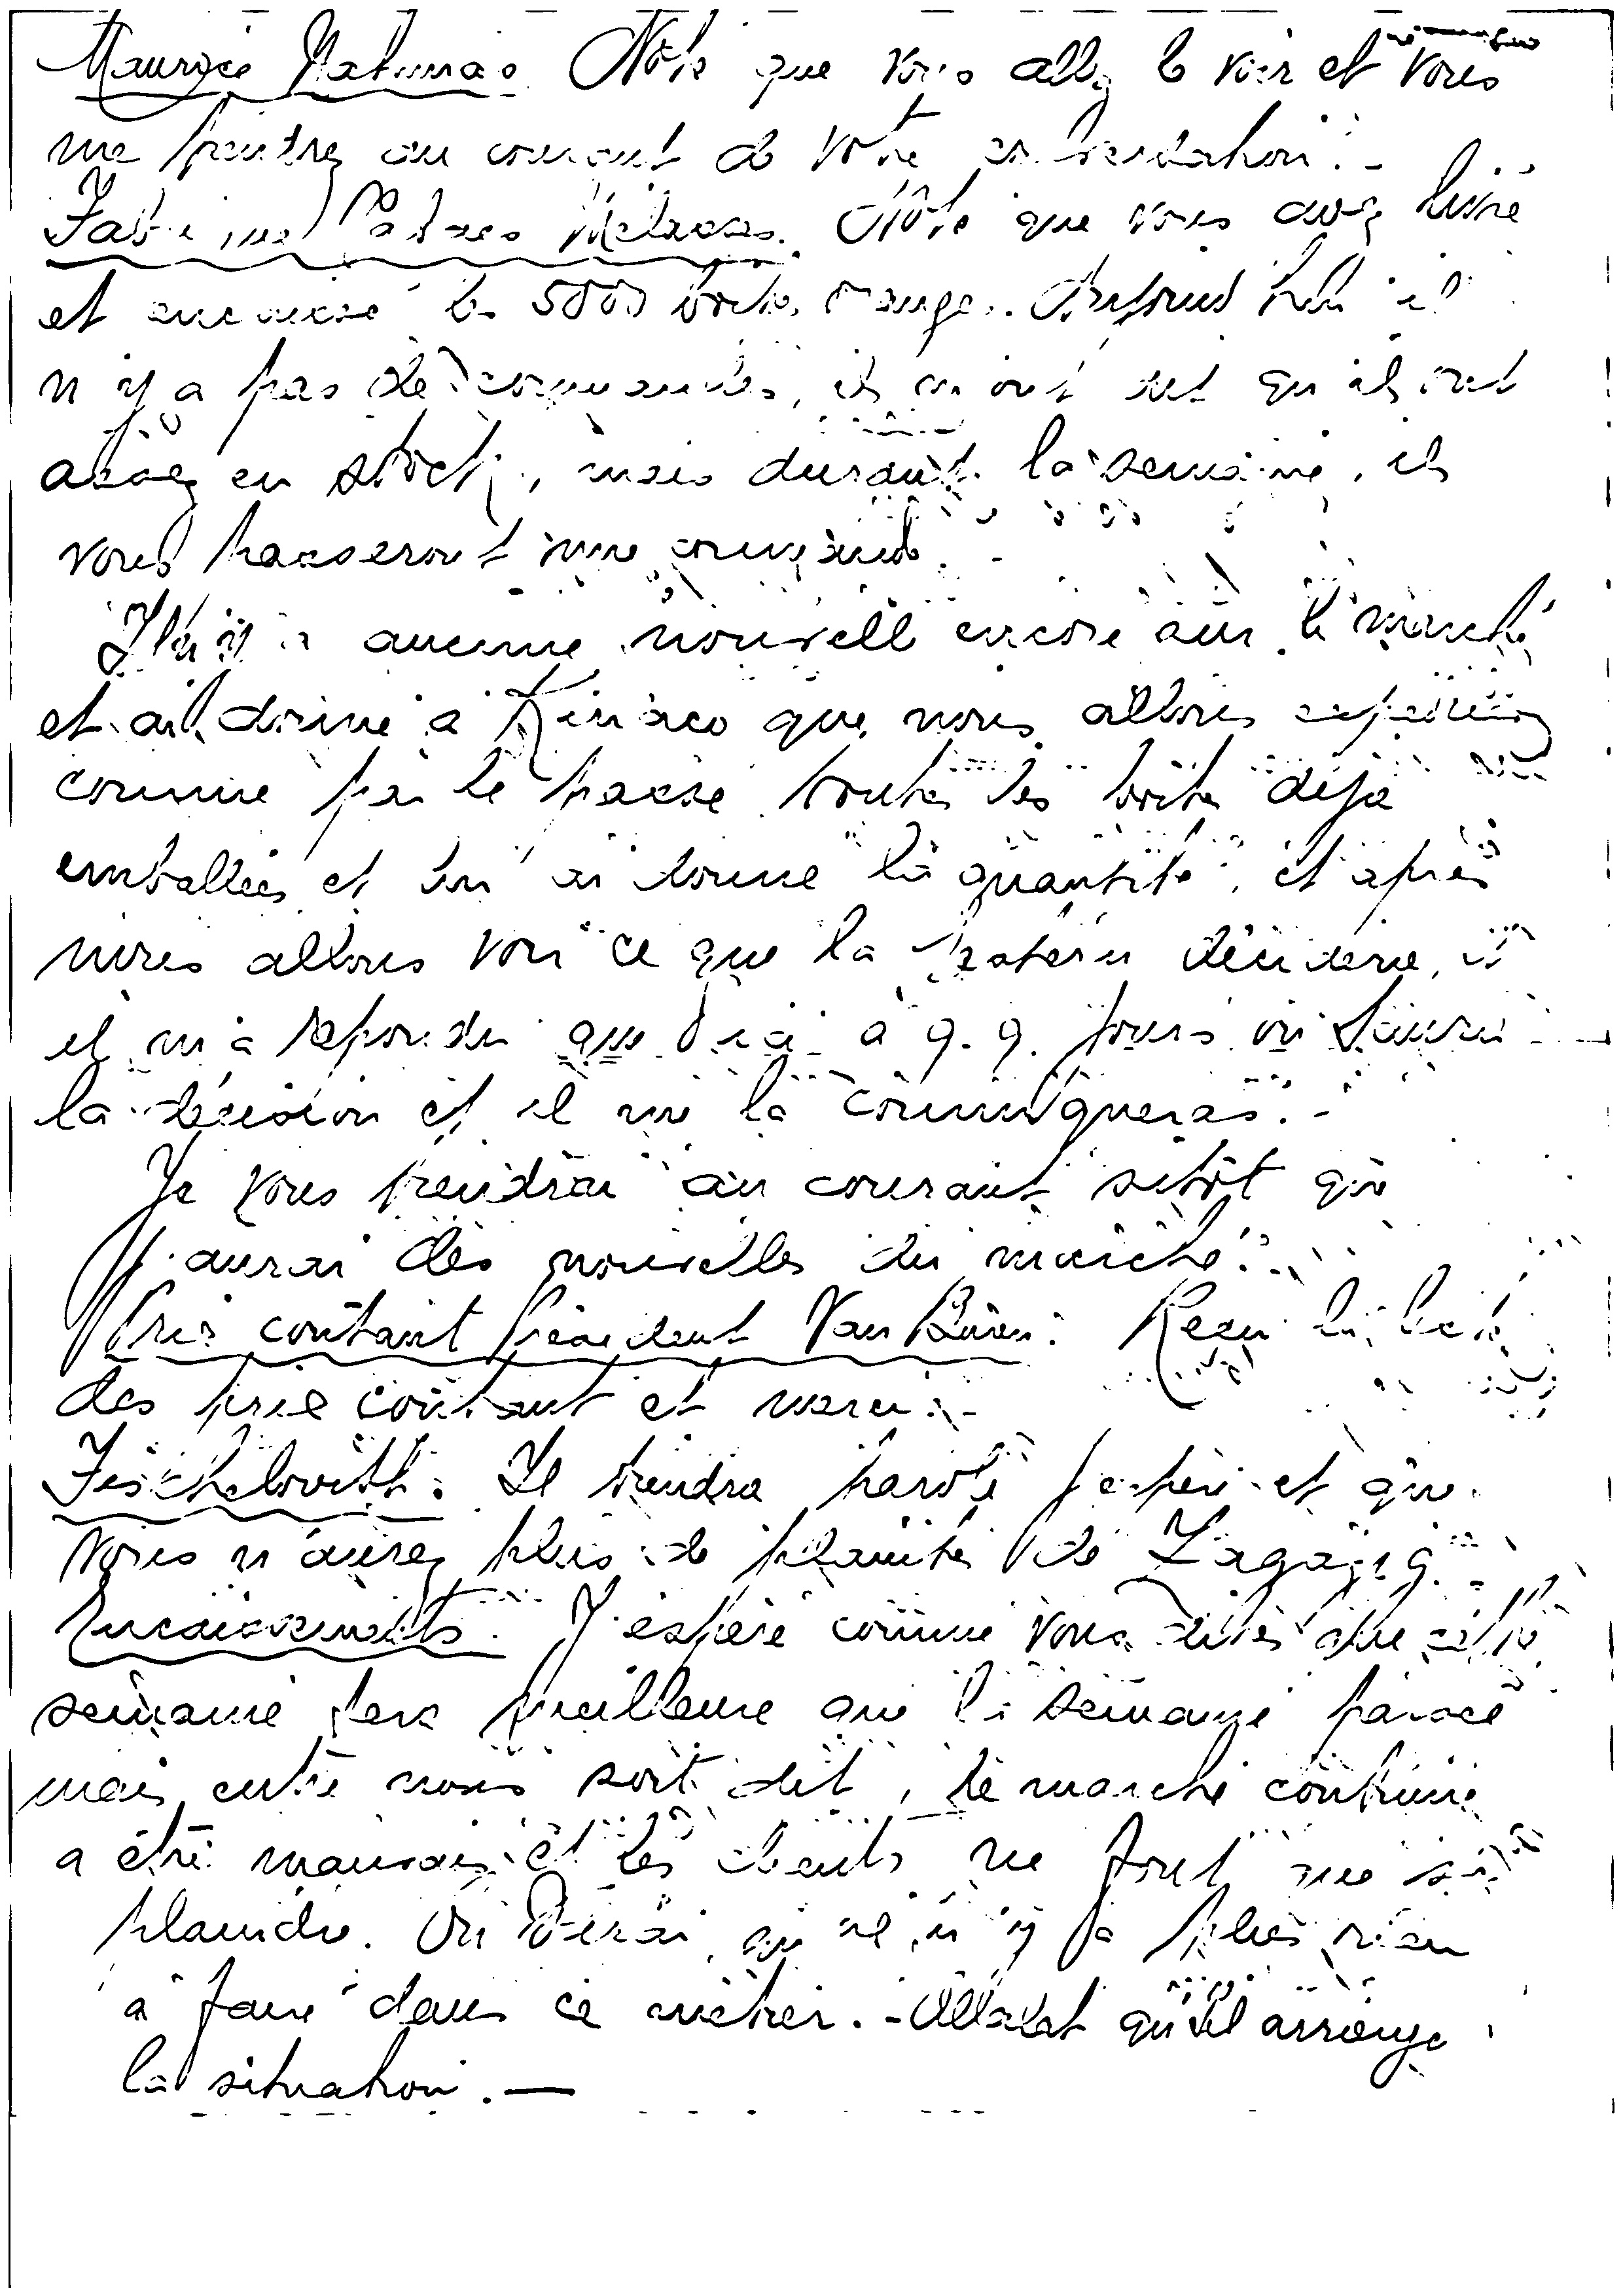 Maurice Note que vous allez le voir et vous
me tiendrez au courant de votre
Note que vous avez livré
et encaissé les 5000 boites rouges. il
n'y a pas de commandes, ils m'ont dit qu'ils ont
assez en stock, mais durant la semaine, ils
vous passeront une commande.
Il n'y a aucune nouvelle encore sur le marché
et ai donné à que nous allons
comme par le passé toutes les boites déjà
emballées et lui ai donné la quantité, et après
nous allons voir ce que la décidera,
il m'a repondu que d'ici à q.q. jours on saura
la decision et il me la communiqueras.-
Je vous tiendrai au courant sitôt que
j'aurai des nouvelles du marché.
Prix coutant President Van Buren: Reçu la liste
des prix coutant et merci.-
Il tiendra parole j'espère et que
vous n'aurez plus de plaintes de Zagazig.-
Encaissements. J'espère comme vous dites que cette
semaine sera meilleure que la semaine passée
mais entre nous soit dit, le marché continue
a être mauvais et les clients ne font que se
plaindre. On dirai qu'il n'y a plus rien
à faire dans ce métier. - qu'il arrange
la situation. —